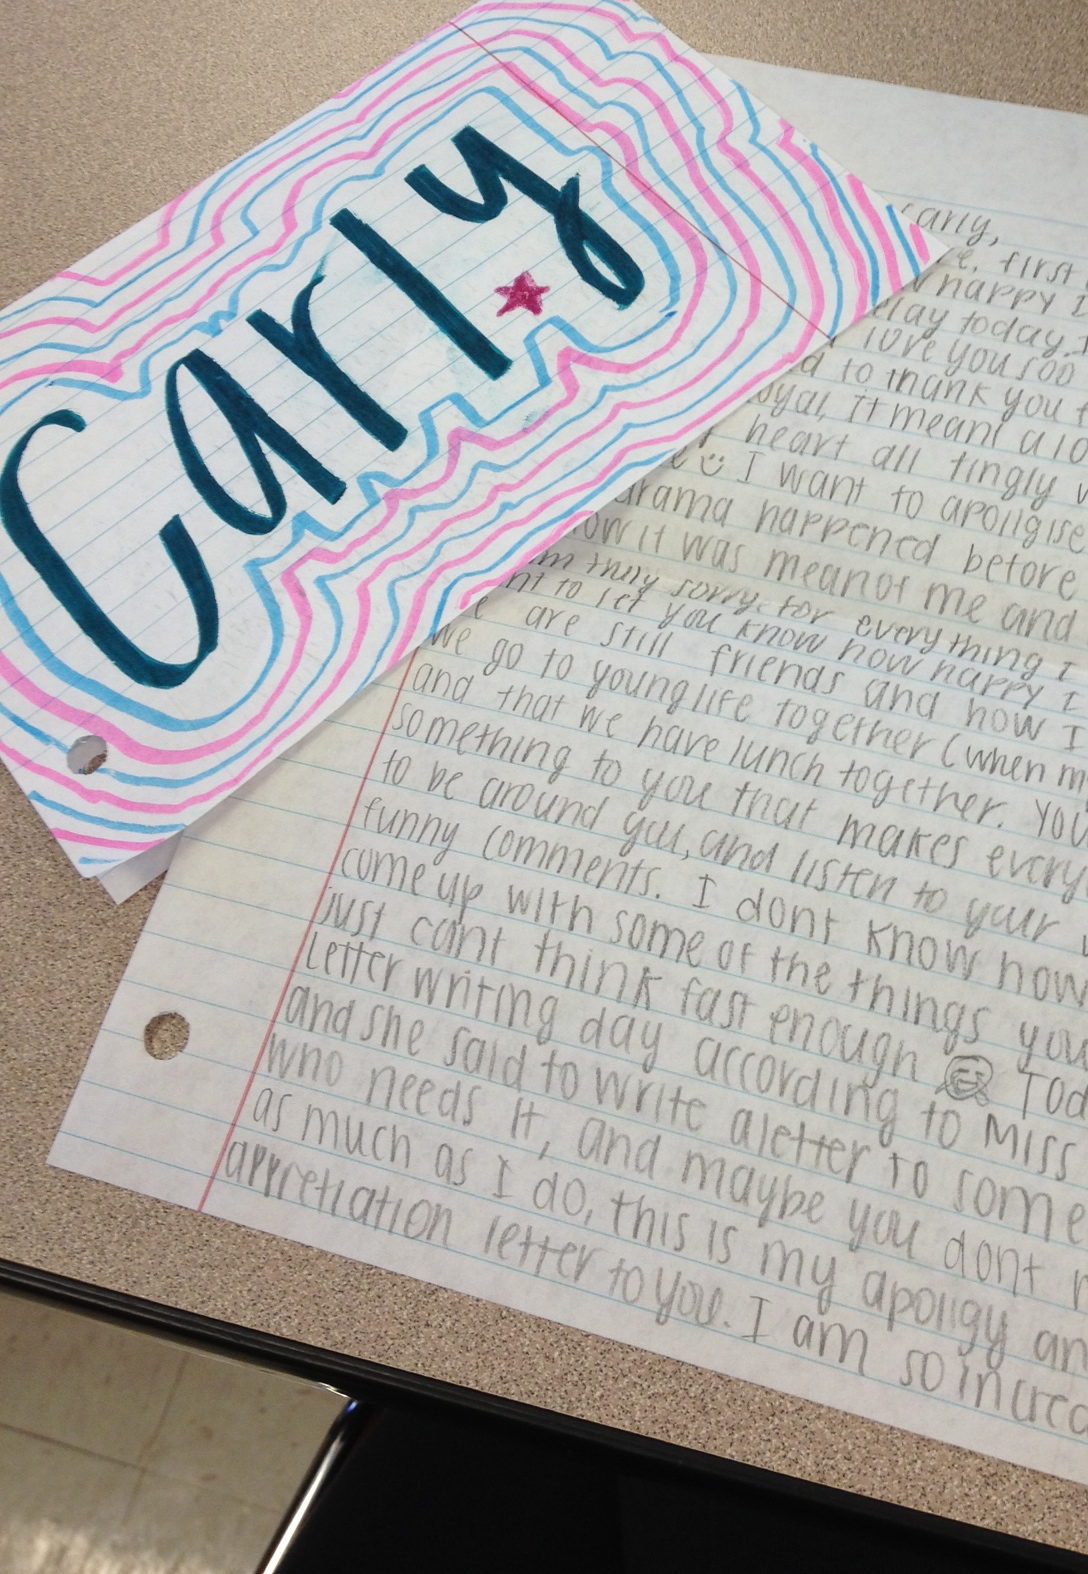 Carly
carly,
first
happy I
day today. I
love you soo
to thank you
loyal, it meant a lo
heart all tingly
I want to apoligise
drama happened before
it was meanof me and
truly sorry for everything I
to let you know how happy I
are still friends and how I
we go to younglife together (when m
and that we have lunch together. You
something to you that makes every
to be around you, and listen to your
funny comments. I dont know how
come up with some of the things you
just cant think fast enough Tod
Letter writing day according to Miss
and she said to write a letter to some
who needs it, and maybe you dont
as much as I do, this is my apoligy an
appretiation letter to you. I am so incred